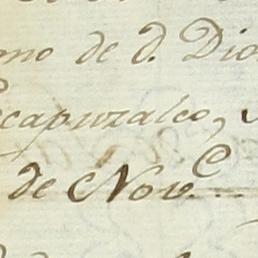 mo de d. Dio
capuzalco,
de Nov.e